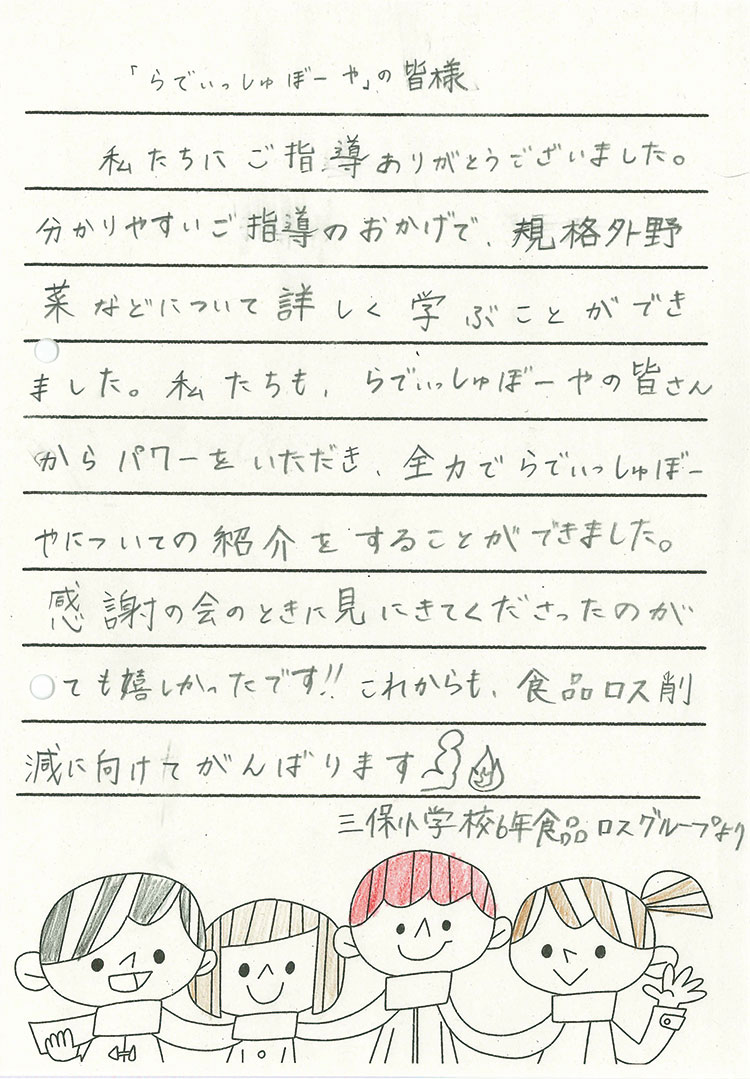 「らでぃっしゅぼーや」の皆様
私たちにご指導ありがとうございました。
分かりやすいご指導のおかげで、規格外野
菜などについて詳しく学ぶことができ
ました。私たちも、らでぃっしゅぼーやの皆さん
からパワーをいただき、全力でらでぃっしゅぼー
やについての紹介をすることができました。
感謝の会のときに見にきてくださったのが
ても嬉しかったです!!これからも、食品ロス削
減に向けてがんばります
三保小学校6年食品ロスグループより